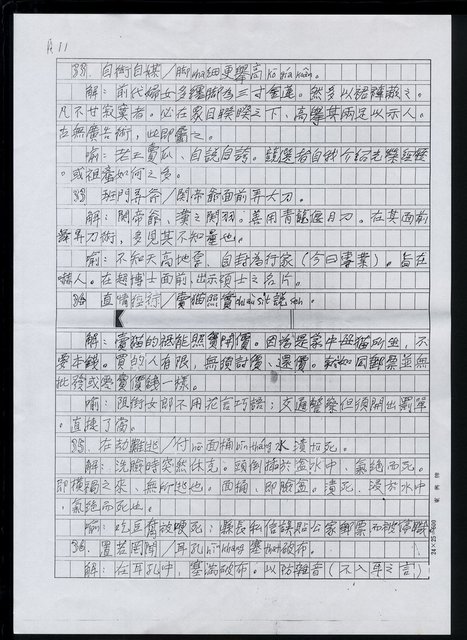 A 11
33. 自衒自媒／脚 細更舉高
解：前代婦女多纏脚為三寸金蓮。然多以裙褲蔽之。
凡不甘寂寞者。必在眾目睽睽之下、高舉其兩足以示人。
在無廣告術，此即屬之。
喻：老王賣瓜、自說自誇。競選者自我介紹光榮經歷
。或祖產如何之多。
班門弄斧／関帝爺面前弄大刀。
解：関帝爺、漢之関羽。善用青龍偃月刀。在其面前
弄刀術，多見其不知量也。
喻：不知天高地宮、自封為行家(今曰專業)。旨在
嚇人。在趙博士面前，出示碩士之名片。
34 直情徑行／賣猫照實 說
解：賣猫的祇能照實開價。因為是家中母猫所生，不
要本錢。買的人有限，無須討價、還價。 同郵票並無
批發或零賣價錢一樣。
喻：阻街女郎不用花言巧語；交通警察但須開出罰單
，直接了當。
35. 在劫難逃／付 面桶 水漬಼死。
解：洗臉時突然休克。頭倒插於盆水中、氣絕而死。
即橫禍之來、無所逃也。面桶、即臉盆。漬死、浸於水中
，氣絕而死也。
喻：吃豆腐放哽死；縣長私信誤貼公家郵票而被停職
36. 置若罔聞／耳孔 塞 破布。
解：在耳孔中，塞滿破布。以防雜音(不入耳之言)
24×25=600